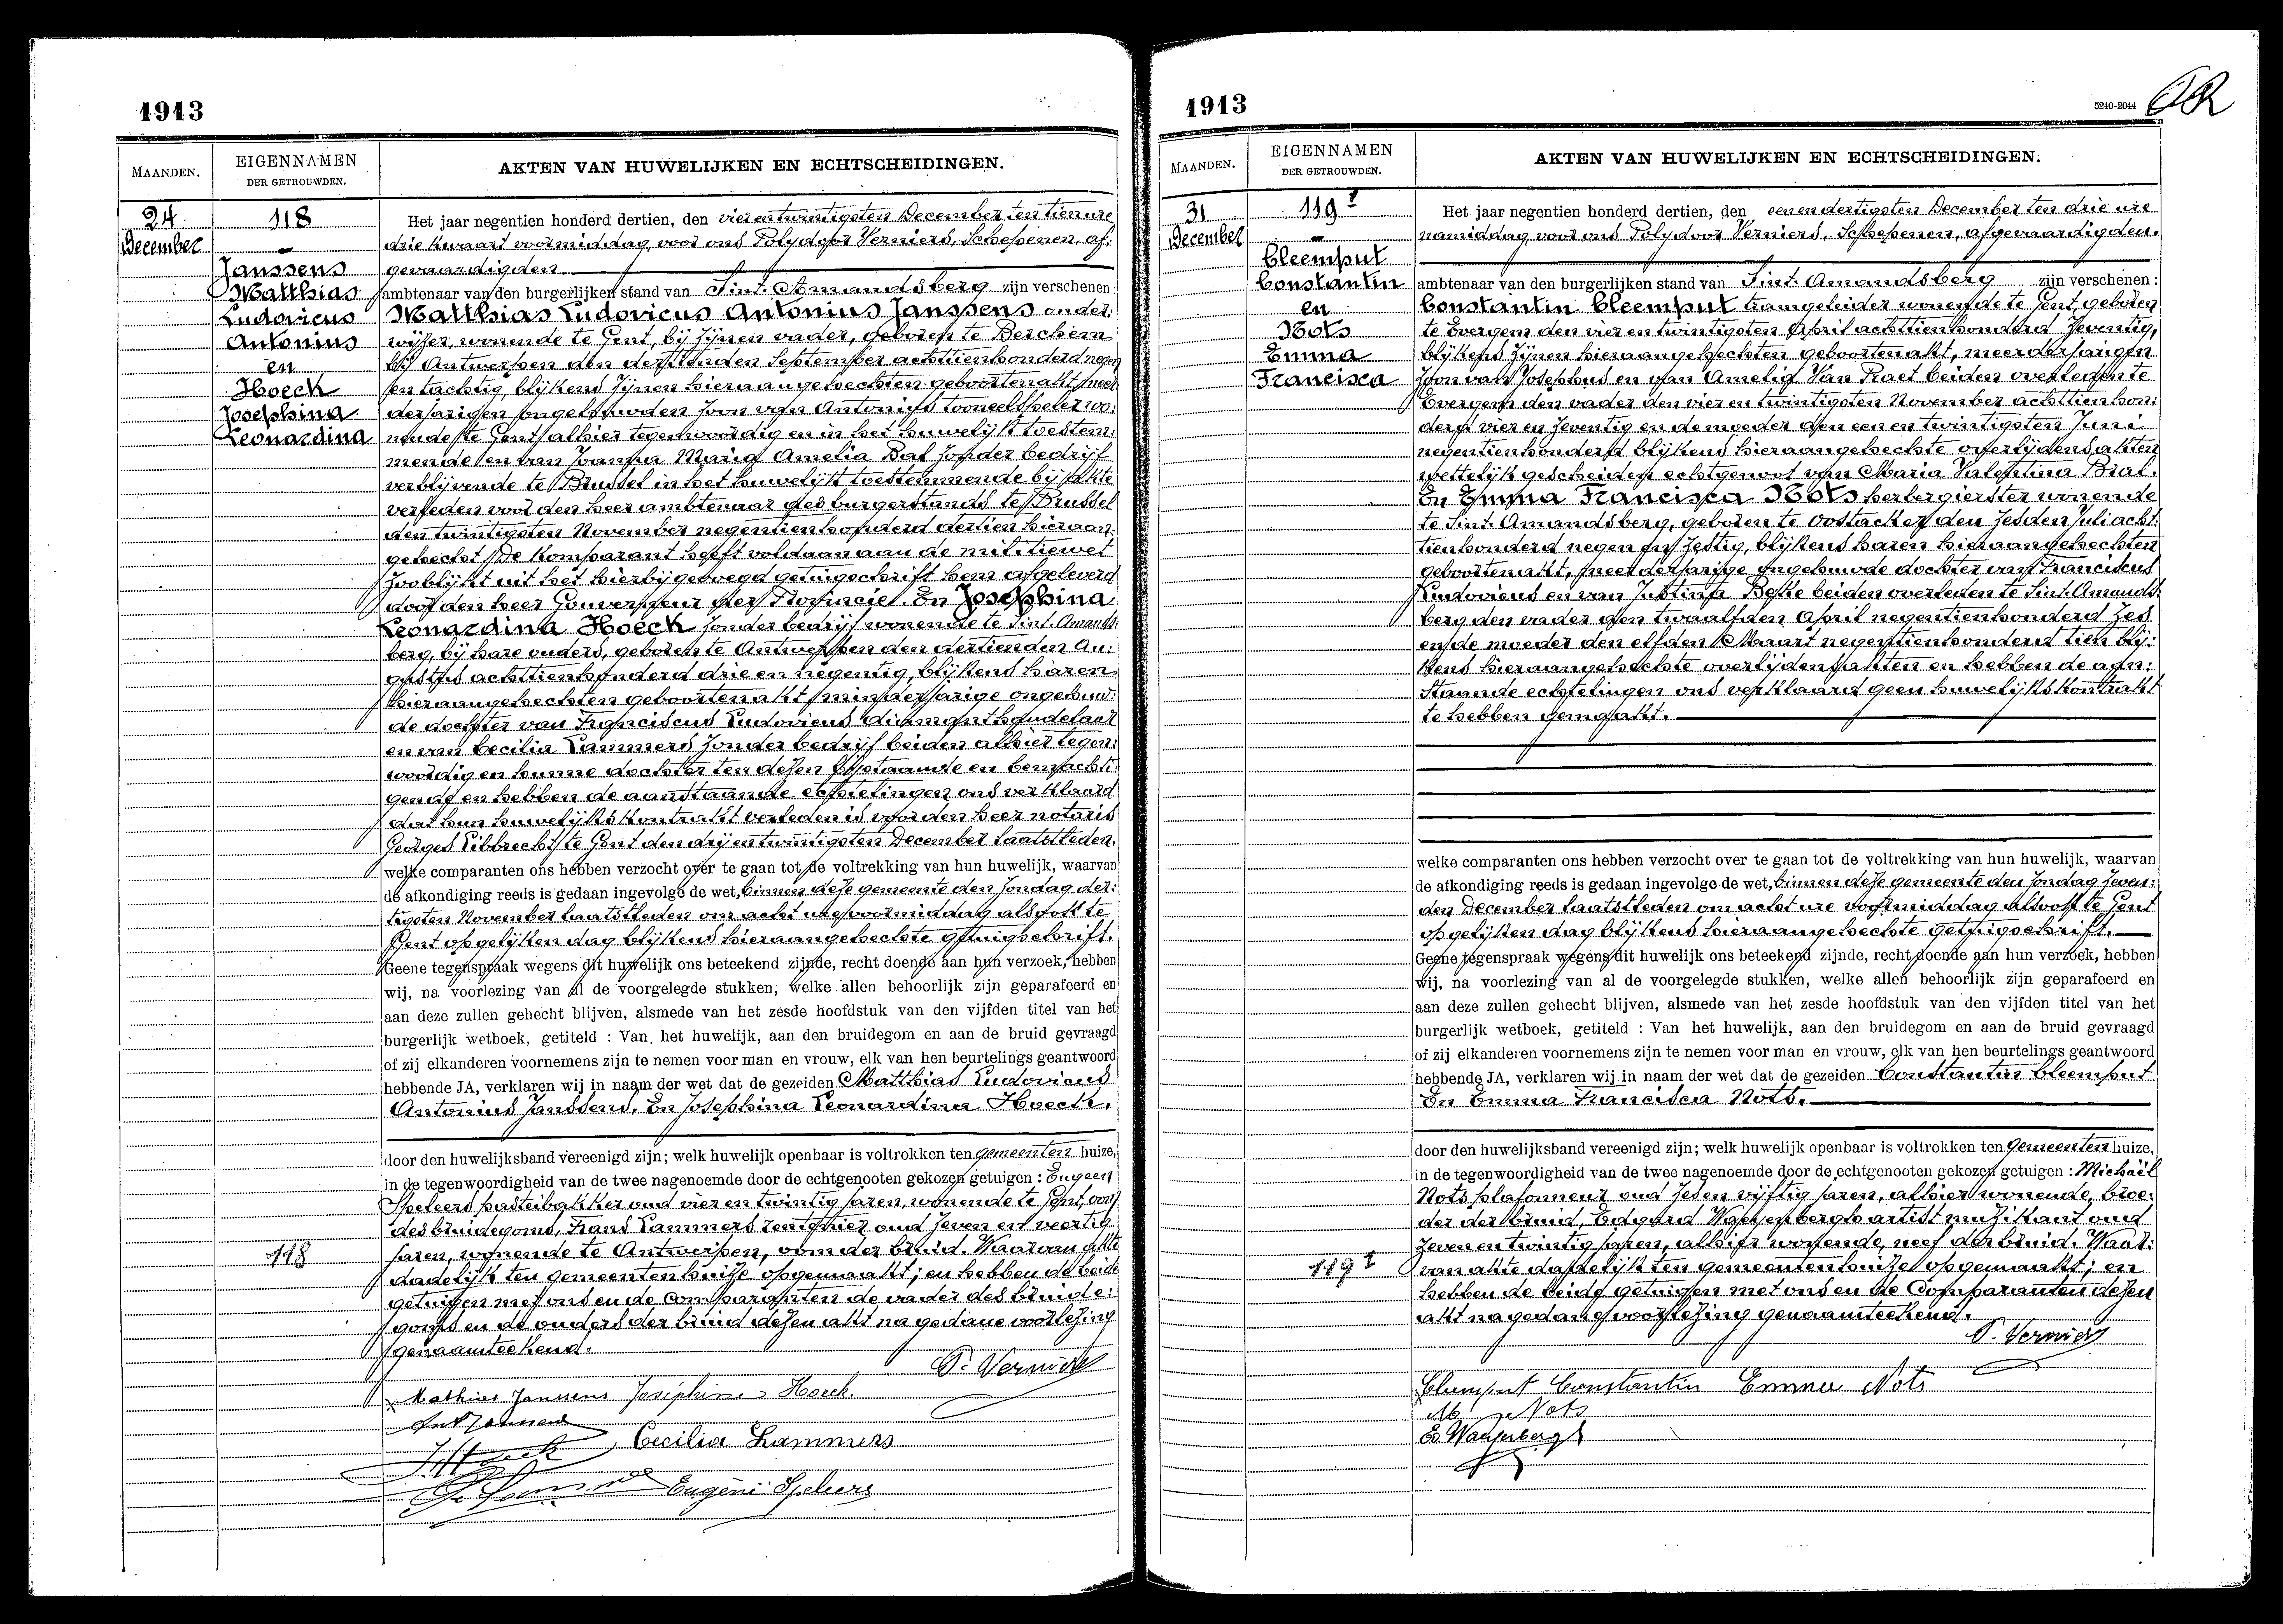 1913
MAANDEN.
EIGENNAMEN
DER GETROUWDEN.
AKTEN VAN HUWELIJKEN EN ECHTSCHEIDINGEN.
24
December
118
Janssens
Matthias
Ludovicus
Antonius
en
Hoeck
Josephina
Leonardina
Het jaar negentien honderd dertien, den vierentwintigsten December ten tien ure
drie kwaart voormiddag, voor ons Polydoor Verniers, Schepenen, af:
gevaardigden
ambtenaar van den burgerlijken stand van Sint-Amandsberg zijn verschenen:
Matthias Ludovicus Antonius Janssens onder:
wijzer, wonende te Gent, bij zijnen vader, geboren te Berchem
bij Antwerpen den dertienden September achttienhonderd negen
en tachtig, blijkens zijnen hieraangehechten geboortenakt, meer
derjarigen ongehuwden zoon van Antonius tooneelspeler wo:
nende te Gent alhier tegenwoordig en in het huwelijk toestem:
mende en van Joanna Maria Amelia Bal zonder bedrijf
verblijvende te Brussel in het huwelijk toestemmende bij akte
verleden voor den heer ambtenaar des burgerstands te Brussel
den twintigsten November negentienhonderd dertien hieraan:
gehecht. De Komparant heeft voldaan aan de militiewet
zoo blijkt uit het hierbijgevoegd getuigschrift hem afgeleverd
door den heer Gouverneur der Provincie. En Josephina
Leonardina Hoeck zonder bedrijf wonende te Sint-Amands
berg, bij hare ouders, geboren te Antwerpen den dertienden Au:
gustus achttienhonderd drie en negentig, blijkens haren
hieraangehechten geboortenakt minderjarige ongehuw:
de dochter van Franciscus Ludovicus diamanthandelaar
en van Cecilia Lammers zonder bedrijf beiden alhier tegen:
woordig en hunne dochter ten dezen bijstaande en bemachti:
gende en hebben de aanstaande echtelingen ons verklaard
dat hun huwelijkskontrakt verleden is voor den heer notaris
Georges Libbrecht te Gent den drijentwintigsten December laatstleden.
welke comparanten ons hebben verzocht over te gaan tot de voltrekking van hun huwelijk, waarvan
de afkondiging reeds is gedaan ingevolge de wet, binnen deze gemeente den zondag der:
tigsten November laatstleden om acht ure voormiddag alsook te
Gent op gelijken dag blijkens hieraangehechte getuigschrift.
Geene tegenspraak wegens dit huwelijk ons beteekend zijnde, recht doende aan hun verzoek, hebben
wij, na voorlezing van al de voorgelegde stukken, welke allen behoorlijk zijn geparafeerd en
aan deze zullen gehecht blijven, alsmede van het zesde hoofdstuk van den vijfden titel van het
burgerlijk wetboek, getiteld : Van het huwelijk, aan den bruidegom en aan de bruid gevraagd
of zij elkanderen voornemens zijn te nemen voor man en vrouw, elk van hen beurtelings geantwoord
hebbende JA, verklaren wij in naam der wet dat de gezeiden Matthias Ludovicus
Antonius Janssens. En Josephina Leonardina Hoeck.
door den huwelijksband vereenigd zijn; welk huwelijk openbaar is voltrokken ten gemeenten huize,
in de tegenwoordigheid van de twee nagenoemde door de echtgenooten gekozen getuigen : Eugeen
Speleers pasteibakker oud vier en twintig jaren, wonende te Gent, oom
des bruidegoms, Frans Lammers rentenier oud zeven en veertig
jaren, wonende te Antwerpen, oom der bruid. Waarvan akte
118
dadelijk ten gemeentenhuize opgemaakt; en hebben de beide
getuigen met ons en de Comparanten de vader des bruide:
goms en de ouders der bruid dezen akt na gedane voorlezing
genaamteekend.
P. Verniers
Mathias Janssens Josephina Hoeck
Ant Janssens
Cecilia Lammers
Eugène Speleers
1913
5240-2044
MAANDEN.
EIGENNAMEN
DER GETROUWDEN.
AKTEN VAN HUWELIJKEN EN ECHTSCHEIDINGEN.
31
December
119
Cleemput
Constantin
en
Nots
Emma
Francisca
Het jaar negentien honderd dertien, den eenendertigsten December ten drie ure
namiddag voor ons Polydoor Verniers, Schepenen, afgevaardigden.
ambtenaar van den burgerlijken stand van Sint-Amandsberg zijn verschenen :
Constantin Cleemput tramgeleider wonende te Gent, geboren
te Evergem den vier en twintigsten April achttienhonderd zeventig,
blijkens zijnen hieraangehechten geboortenakt, meerderjarigen
zoon van Josephus en van Amelia Van Raet beiden overleden te
Evergem den vader den vier en twintigsten November achttien hon:
derd vier en zeventig en de moeder den een en twintigsten Juni
negentienhonderd blijkens hieraangehechte overlijdensakten
wettelijk gescheiden echtgenoot van Maria Valentina Bral.
En Emma Francisca Nots herbergierster wonende
te Sint-Amandsberg, geboren te Oostacker den zesden Juli acht:
tienhonderd negen en zestig, blijkens haren hieraangehechten
geboortenakt, meerderjarige ongehuwde dochter van Franciscus
Ludovicus en van Justina Beke beiden overleden te Sint-Amands:
berg den vader den twaalfden April negentienhonderd zes
en de moeder den elfden Maart negentienhonderd tien blij:
kens hieraangehechte overlijdensakten en hebben de aan:
staande echtelingen ons verklaard geen huwelijkskontrakt
te hebben gemaakt.
welke comparanten ons hebben verzocht over te gaan tot de voltrekking van hun huwelijk, waarvan
de afkondiging reeds is gedaan ingevolge de wet, binnen deze gemeente den zondag zeven:
den December laatstleden om acht ure voormiddag alsook te Gent
op gelijken dag blijkens hieraangehechte getuigschrift.
Geene tegenspraak wegens dit huwelijk ons beteekend zijnde, recht doende aan hun verzoek, hebben
wij, na voorlezing van al de voorgelegde stukken, welke allen behoorlijk zijn geparafeerd en
aan deze zullen gehecht blijven, alsmede van het zesde hoofdstuk van den vijfden titel van het
burgerlijk wetboek, getiteld : Van het huwelijk, aan den bruidegom en aan de bruid gevraagd
of zij elkanderen voornemens zijn te nemen voor man en vrouw, elk van hen beurtelings geantwoord
hebbende JA, verklaren wij in naam der wet dat de gezeiden Constantin Cleemput
En Emma Francisca Nots.
door den huwelijksband vereenigd zijn; welk huwelijk openbaar is voltrokken ten gemeenten huize,
in de tegenwoordigheid van de twee nagenoemde door de echtgenooten gekozen getuigen : Michaël
Nots plafonneur oud zes en vijftig jaren, alhier wonende, broe:
der der bruid, Edgard Waeyenbergh artist muzikant oud
zeven en twintig jaren, alhier wonende, neef der bruid. Waar:
119
van akte dadelijk ten gemeentenhuize opgemaakt; en
hebben de beide getuigen met ons en de Comparanten dezen
akt na gedane voorlezing genaamteekend.
P. Verniers
Cleemput Constantin Emma Nots
M Nots
E. Waeyenbergh